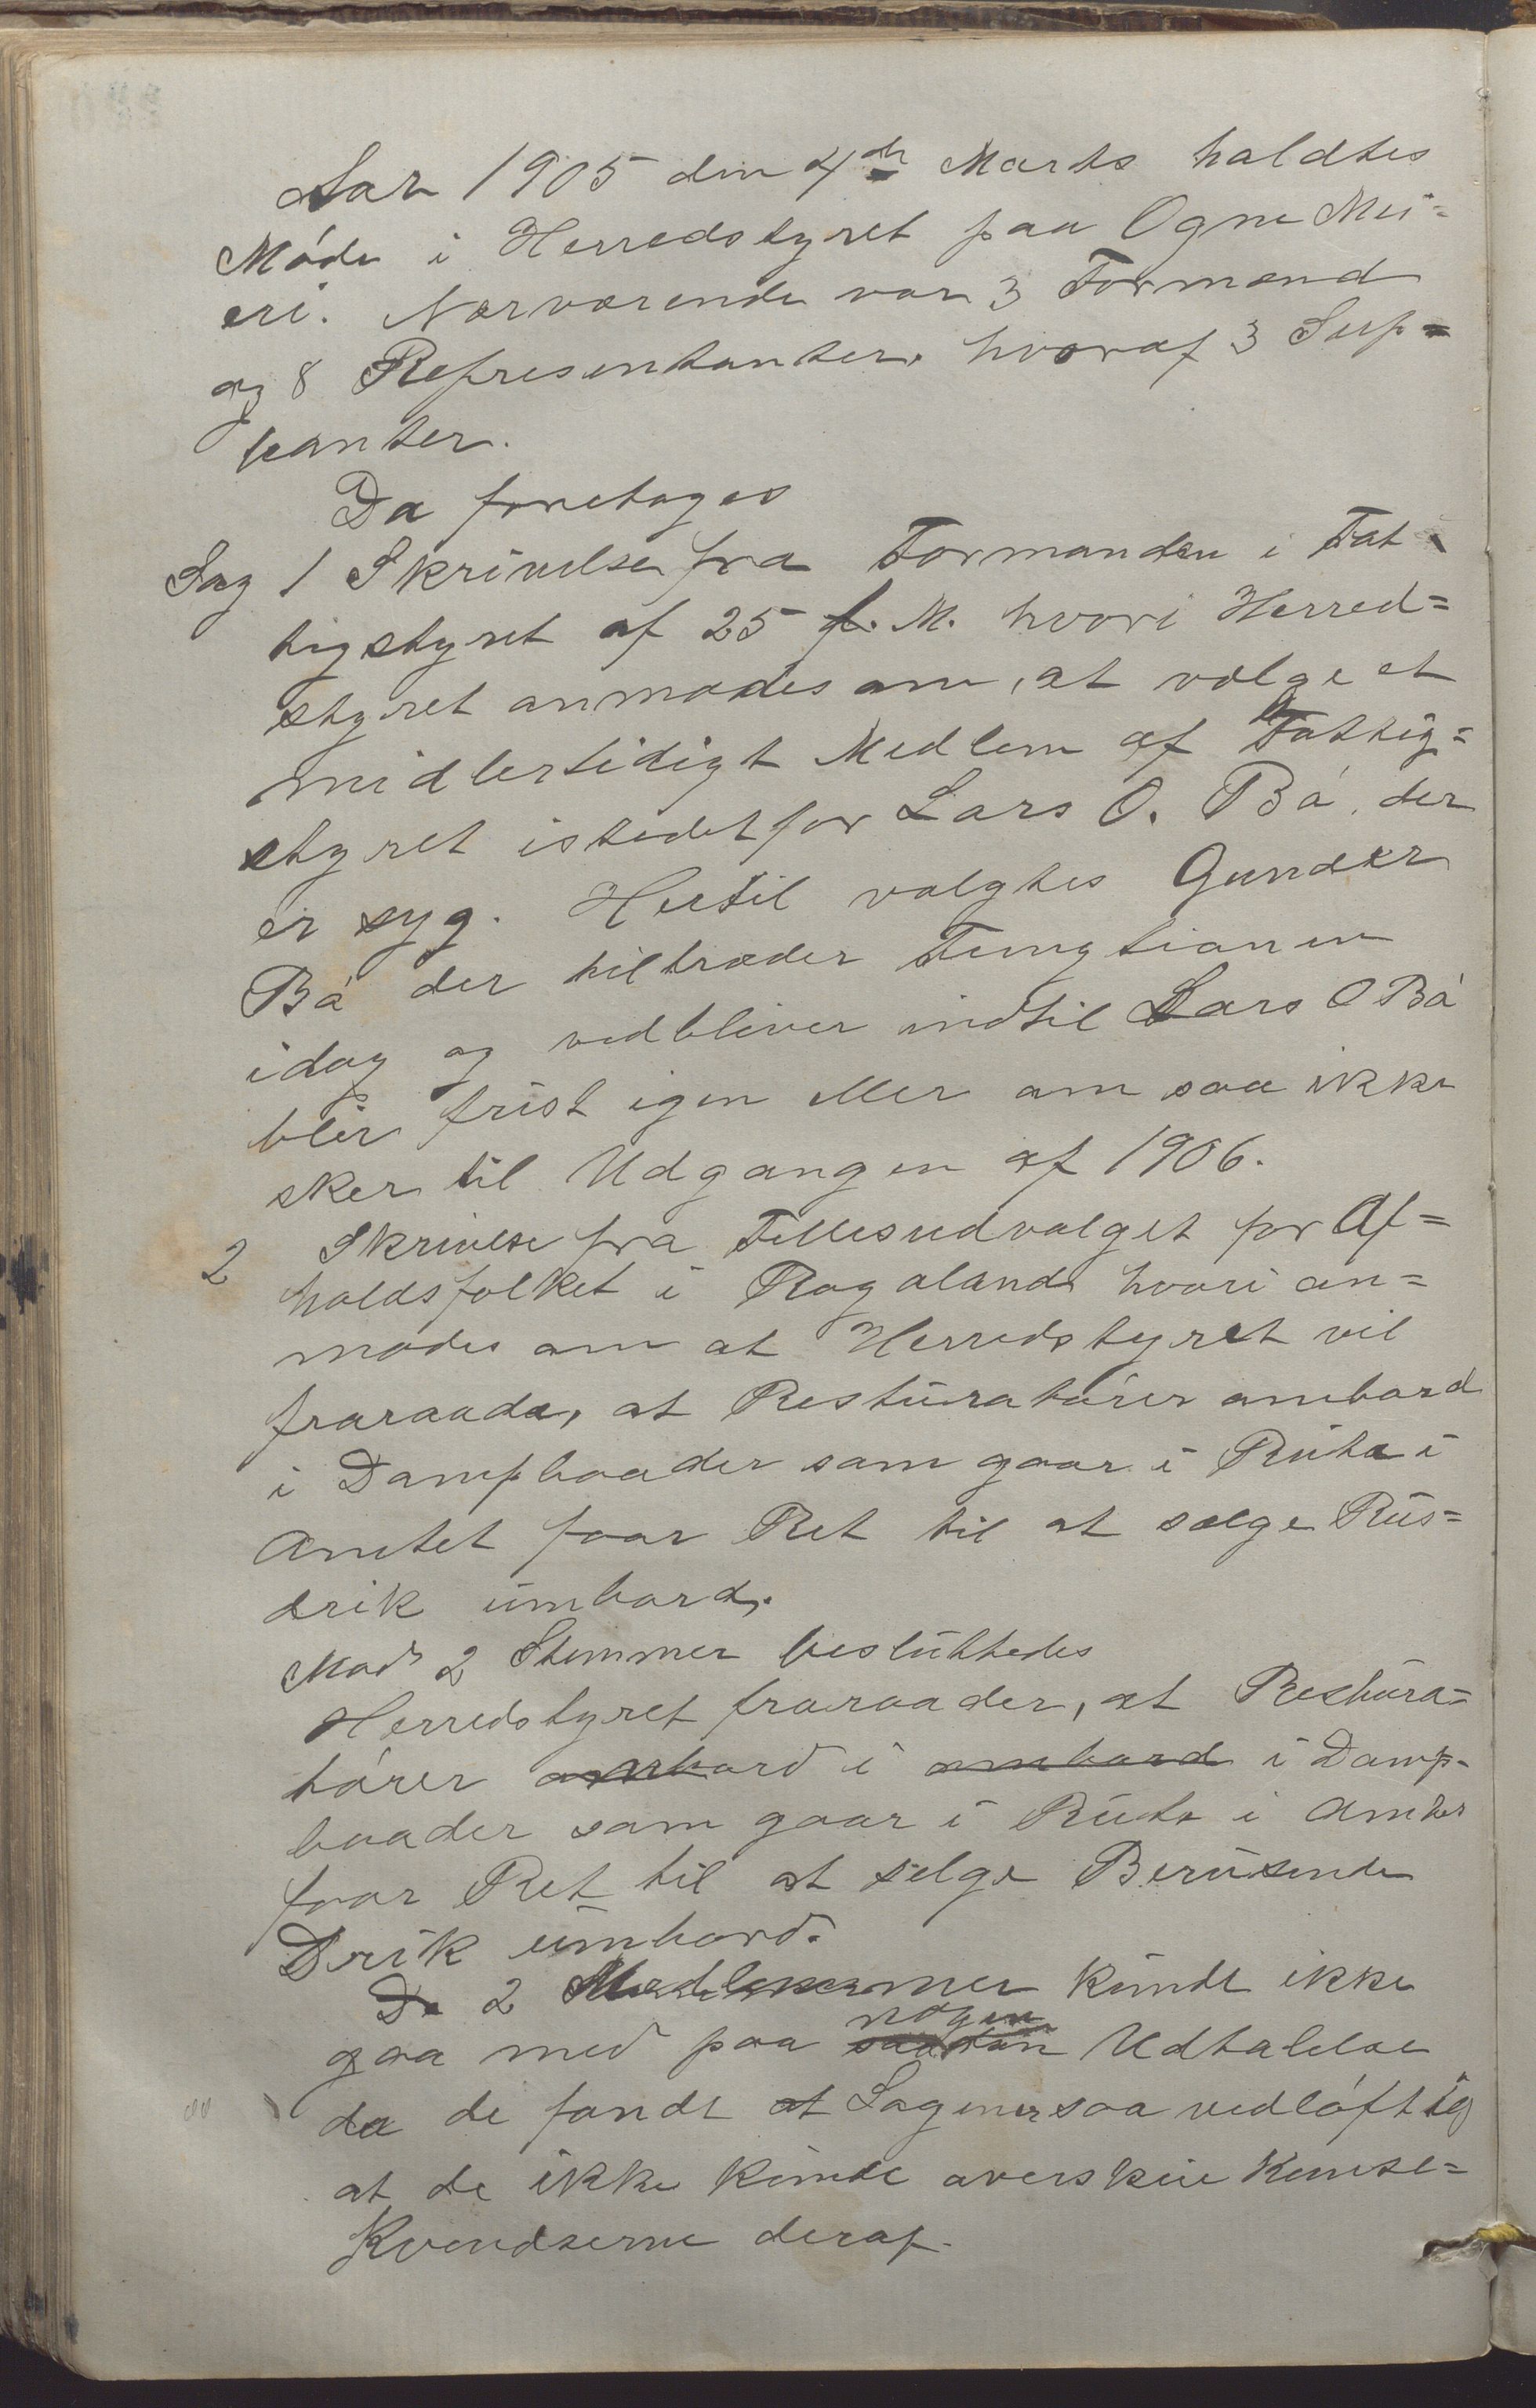 Aar 1905 den 4de Marts holdtes
Møde i Herredstyret paa Ogne Mei=
eri. Nærværende var 3 Formænd
og 8 Representanter, hvoraf 3 Sup=
leanter.
Da foretoges
Sag 1 Skrivelse fra Formanden i Fat
tigstyret af 25 f. M. hvori Herred=
styret anmodes om, at vælge et
midlertidigt Medlem af Fattig=
styret istedetfor Lars O. Bø, der
er syg. Hertil valgtes Gunder
Bø der tiltræder Fungtionen
idag og vedbliver indtil Lars O Bø
blir frist igen eller om saa ikke
sker til Udgangen af 1906.
2 Skrivelse fra Fellesudvalget for Af=
holdsfolket i Rogaland hvori an=
modes om at Herredstyret vil
fraraade, at Restúratører ombord
i Dampbaader som gaar i Rúte i
Amtet faar Ret til at sælge Rús=
drik úmbord.
Mod 2 Stemmer beslúttedes
Herredstyret fraraader, at Restúra=
tører ombord i ombord i Damp-
baader som gaar i Rúte i Amtet
faar Ret til at selge Berúsende
Drik úmbord.
De 2 Medlemmer kúnde ikke
nogen
gaa med paa saadan Udtalelse
da de fandt at Sagen er saa vedløftig
at de ikke kúnde overskue Kunse=
kvendserne deraf.